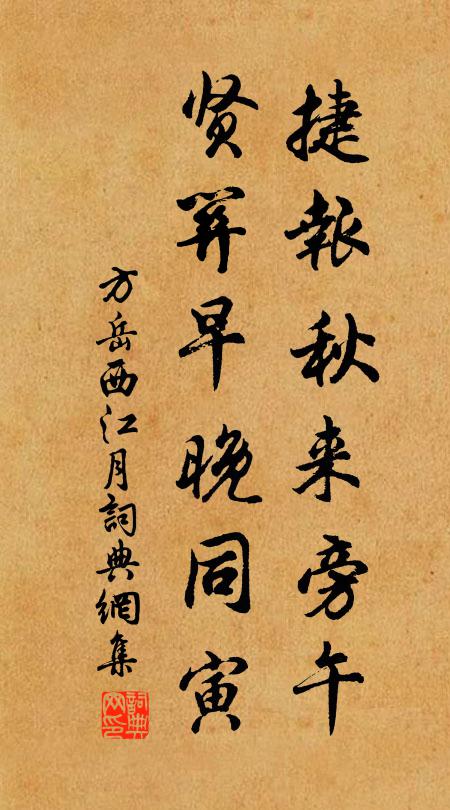 捷報秋来旁午
贤关早晚同寅
方岳西江月詞典網集
詞典网印